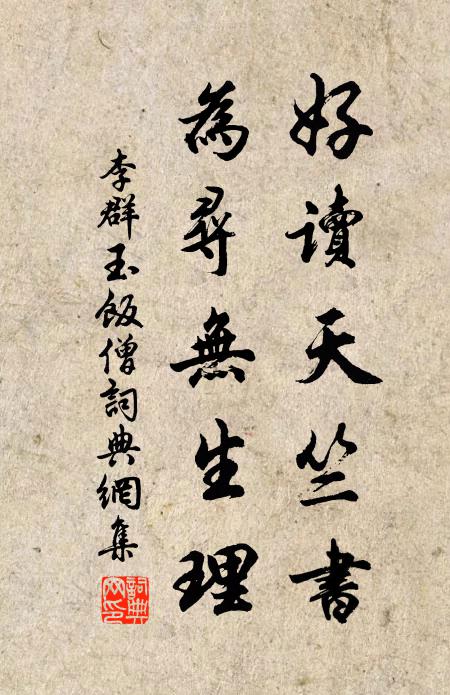 好讀天竺書
為尋無生理
李群玉飯僧詞典網集
詞典網印